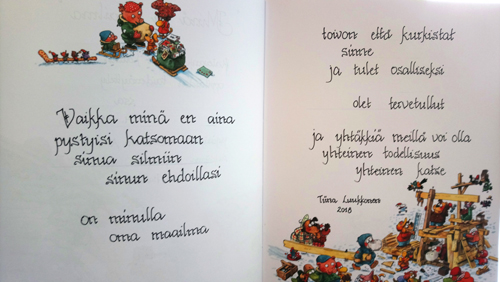 Vaikka minä en aina
pystyisi katsomaan
sinua silmiin
sinun ehdoillasi
on minulla
oma maailma
toivon että kurkistat
sinne
ja tulet osalliseksi
olet tervetullut
ja yhtäkkiä meillä voi olla
yhteinen todellisuus
yhteinen katse
Tiina Luukkonen
2018